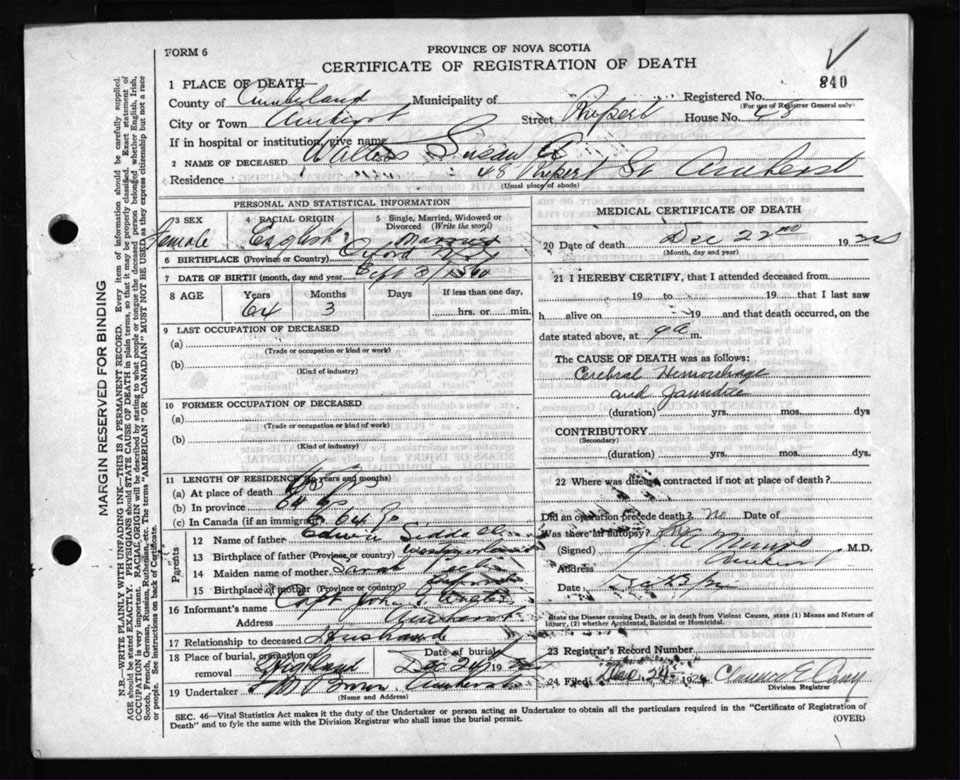 FORM 6
PROVINCE OF NOVA SCOTIA
CERTIFICATE OF REGISTRATION OF DEATH
840
1 PLACE OF DEATH
County of Cumberland Municipality of Registered No.
(For use of Registrar General only)
City or Town Amherst Street, Rupert House No. 48
If in hospital or institution, give name
2 NAME OF DECEASED Walters Susan
Residence 48 Rupert St Amherst
(Usual place of abode)
PERSONAL AND STATISTICAL INFORMATION
3 SEX Female
4 RACIAL ORIGIN English
5 Single, Married, Widowed or Divorced (Write the word) Married
6 BIRTHPLACE (Province or Country) Oxford
7 DATE OF BIRTH (month, day and year) Sept 1860
8 AGE Years 64 Months 3 Days If less than one day, hrs. or min.
9 LAST OCCUPATION OF DECEASED
(a)
(Trade or occupation or kind or work)
(b)
(Kind of industry)
10 FORMER OCCUPATION OF DECEASED
(a)
(Trade or occupation or kind of work)
(b)
(Kind of industry)
11 LENGTH OF RESIDENCE (in years and months)
(a) At place of death
(b) In province 64
(c) In Canada (if an immigrant) 64
Parents
12 Name of father Edwin
13 Birthplace of father (Province or country)
14 Maiden name of mother Sarah
15 Birthplace of mother (Province or country) Oxford
16 Informant's name Capt John
Address Amherst
17 Relationship to deceased Husband
18 Place of burial, cremation or removal Highland Date of burial Dec 24 19
19 Undertaker Amherst
(Name and Address)
MEDICAL CERTIFICATE OF DEATH
20 Date of death Dec 22nd 19
(Month, day and year)
21 I HEREBY CERTIFY, that I attended deceased from
19 to 19 that I last saw
h alive on 19 and that death occurred, on the
date stated above, at 9 a m.
The CAUSE OF DEATH was as follows:
Cerebral Hemorrhage
and Jaundice
(duration) yrs. mos. dys
CONTRIBUTORY
(Secondary)
(duration) yrs. mos. dys.
22 Where was disease contracted if not at place of death?
Did an operation precede death? No Date of
Was there an autopsy? No
(Signed) Munro M.D.
Address Amherst
Date
State the Disease causing Death, or in death from Violent Causes, state (1) Means and Nature of
Injury, (2) whether Accidental, Suicidal or Homicidal.
23 Registrar's Record Number
24 Filed Dec 24 192 Clarence E
Division Registrar
SEC. 46—Vital Statistics Act makes it the duty of the Undertaker or person acting as Undertaker to obtain all the particulars required in the "Certificate of Registration of
Death" and to fyle the same with the Division Registrar who shall issue the burial permit.
(OVER)
MARGIN RESERVED FOR BINDING
N.B.—WRITE PLAINLY WITH UNFADING INK—THIS IS A PERMANENT RECORD. Every item of information should be carefully supplied.
AGE should be stated EXACTLY. PHYSICIANS should STATE CAUSE OF DEATH in plain terms, so that it may be properly classified. Exact statement of
OCCUPATION is very important. RACIAL ORIGIN will be described by stating to what people or tongue the deceased person belonged whether English, Irish,
Scotch, French, German, Russian, Ruthenian, etc. The terms "AMERICAN" OR "CANADIAN" MUST NOT BE USED as they express citizenship but not a race
or people. See instructions on back of Certificate.